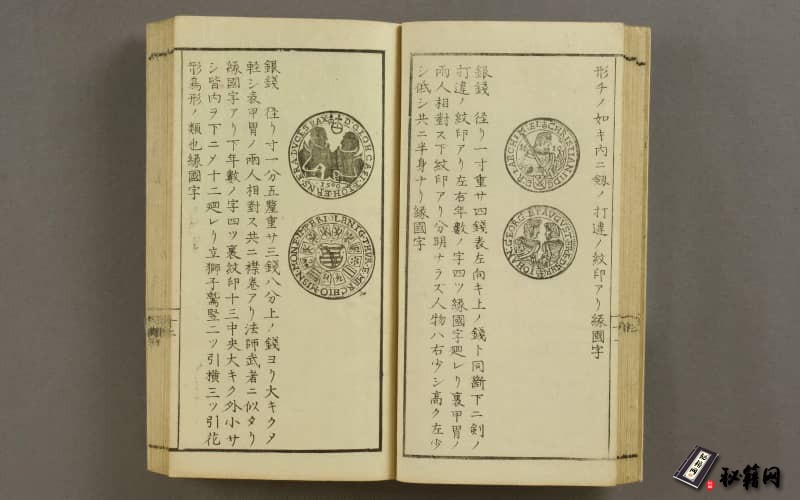 形チノ如キ内ニ剱ノ打違ノ紋印アリ縁國字
銀錢 径リ一寸重サ四錢表左向キ上ノ錢ト同斷下ニ剣ノ
打違ノ紋印アリ左右年數ノ字四ツ縁國字廻レリ裏甲冑ノ
兩人相對ス下紋印アリ分明ナラズ人物ハ右少シ高ク左少
シ低シ共ニ半身ナリ縁國字
銀錢 径リ寸一分五釐重サ三錢八分上ノ錢ヨリ大キクタ
軽シ表甲冑ノ兩人相對ス共ニ襟巻アリ法師武者ニ似タリ
縁國字アリ下年數ノ字四ツ裏紋印十三中央大キク外小サ
シ皆内ヲ下ニノ十二廻レリ立獅子鷲竪二ツ引横三ツ引花
形鳥形ノ類也縁國字
秘籍网